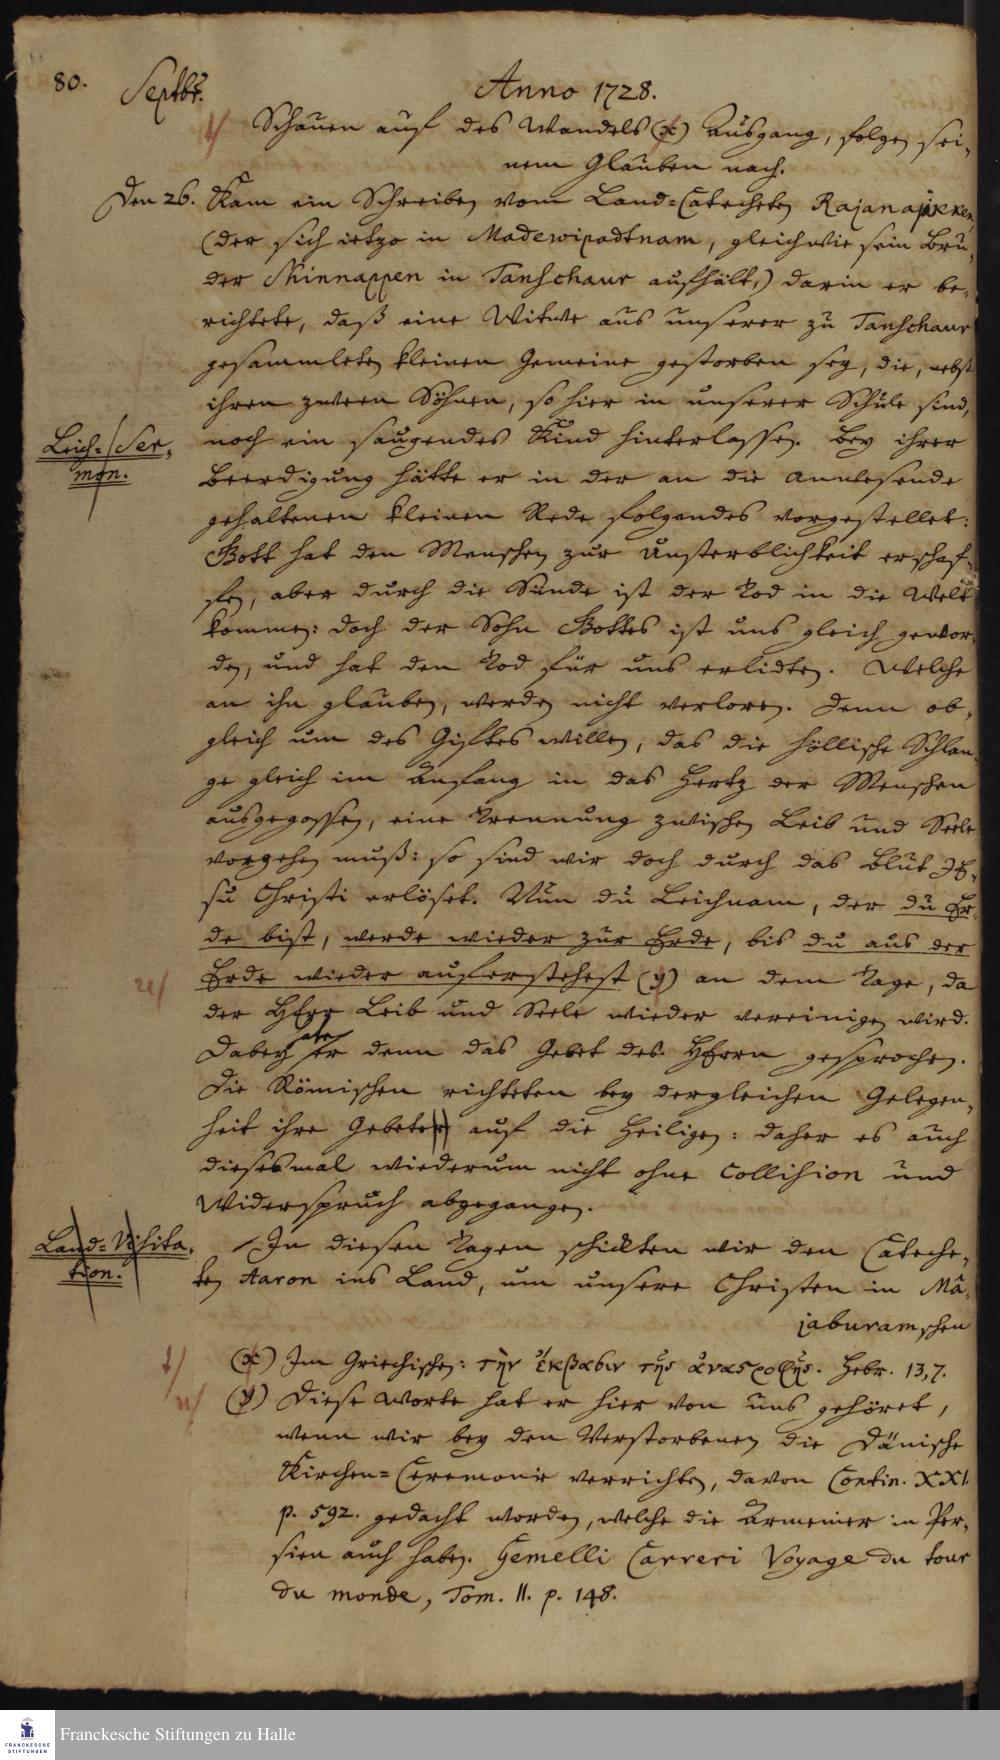 80. Septbr. Anno 1728.
t/ Schauen auf des Wandels (x) Ausgang, folgen sei-
nem Glauben nach.
Den 26. Kam ein Schreiben vom Land-Catecheten Rajanajikken,
(der sich ietzo in Madewipadtnam, gleichwie sein Bru-
der Skinnappen in Tanschaur aufhält,) darin er be-
richtete, daß eine Witwe aus unserer zu Tanschaur
gesammleten kleinen Gemeine gestorben sey, die, nebst
ihren zween Söhnen, so hier in unserer Schule sind,
Leich-Ser-
mon.
noch ein saugendes Kind hinterlassen. Bey ihrer
Beerdigung hätte er in der an die Anwesende
gehaltenen kleinen Rede folgendes vorgestellet:
Gott hat den Menschen zur Unsterblichkeit erschaf-
fen, aber durch die Sünde ist der Tod in die Welt
kommen: doch der Sohn Gottes ist uns gleich gewor-
den, und hat den Tod für uns erlidten. Welche
an ihn glauben, werden nicht verloren. Denn ob-
gleich um des Giftes willen, das die höllische Schlan-
ge gleich im Anfang in das Hertz der Menschen
ausgegossen, eine Trennung zwischen Leib und Seele
vorgehen muß: so sind wir doch durch das Blut JE-
su Christi erlöset. Nun du Leichnam, der du Er-
de bist, werde wieder zur Erde, bis du aus der
u/ Erde wieder auferstehest (y) an dem Tage, da
der HErr Leib und Seele wieder vereinigen wird.
Dabey habe er denn das Gebet des HErrn gesprochen.
Die Römischen richteten bey dergleichen Gelegen-
heit ihre Gebeter auf die Heiligen: daher es auch
diesesmal wiederum nicht ohne Collision und
Widerspruch abgegangen.
Land-Visita-
tion.
In diesen Tagen schickten wir den Cateche-
ten Aaron ins Land, um unsere Christen in Mâ-
jaburamschen
t/ (x) Im Griechischen: τὴν ἔκβασιν τῆς ἀναστροφῆς. Hebr. 13,7.
u/ (y) Diese Worte hat er hier von uns gehöret,
wenn wir bey den Verstorbenen die Dänische
Kirchen-Ceremonie verrichten, davon Contin. XXI.
p. 592. gedacht worden, welche die Armenier in Per-
sien auch haben. Gemelli Carreri Voyage du tour
du monde, Tom. II. p. 148.
FRANCKESCHE
STIFTUNGEN
Franckesche Stiftungen zu Halle